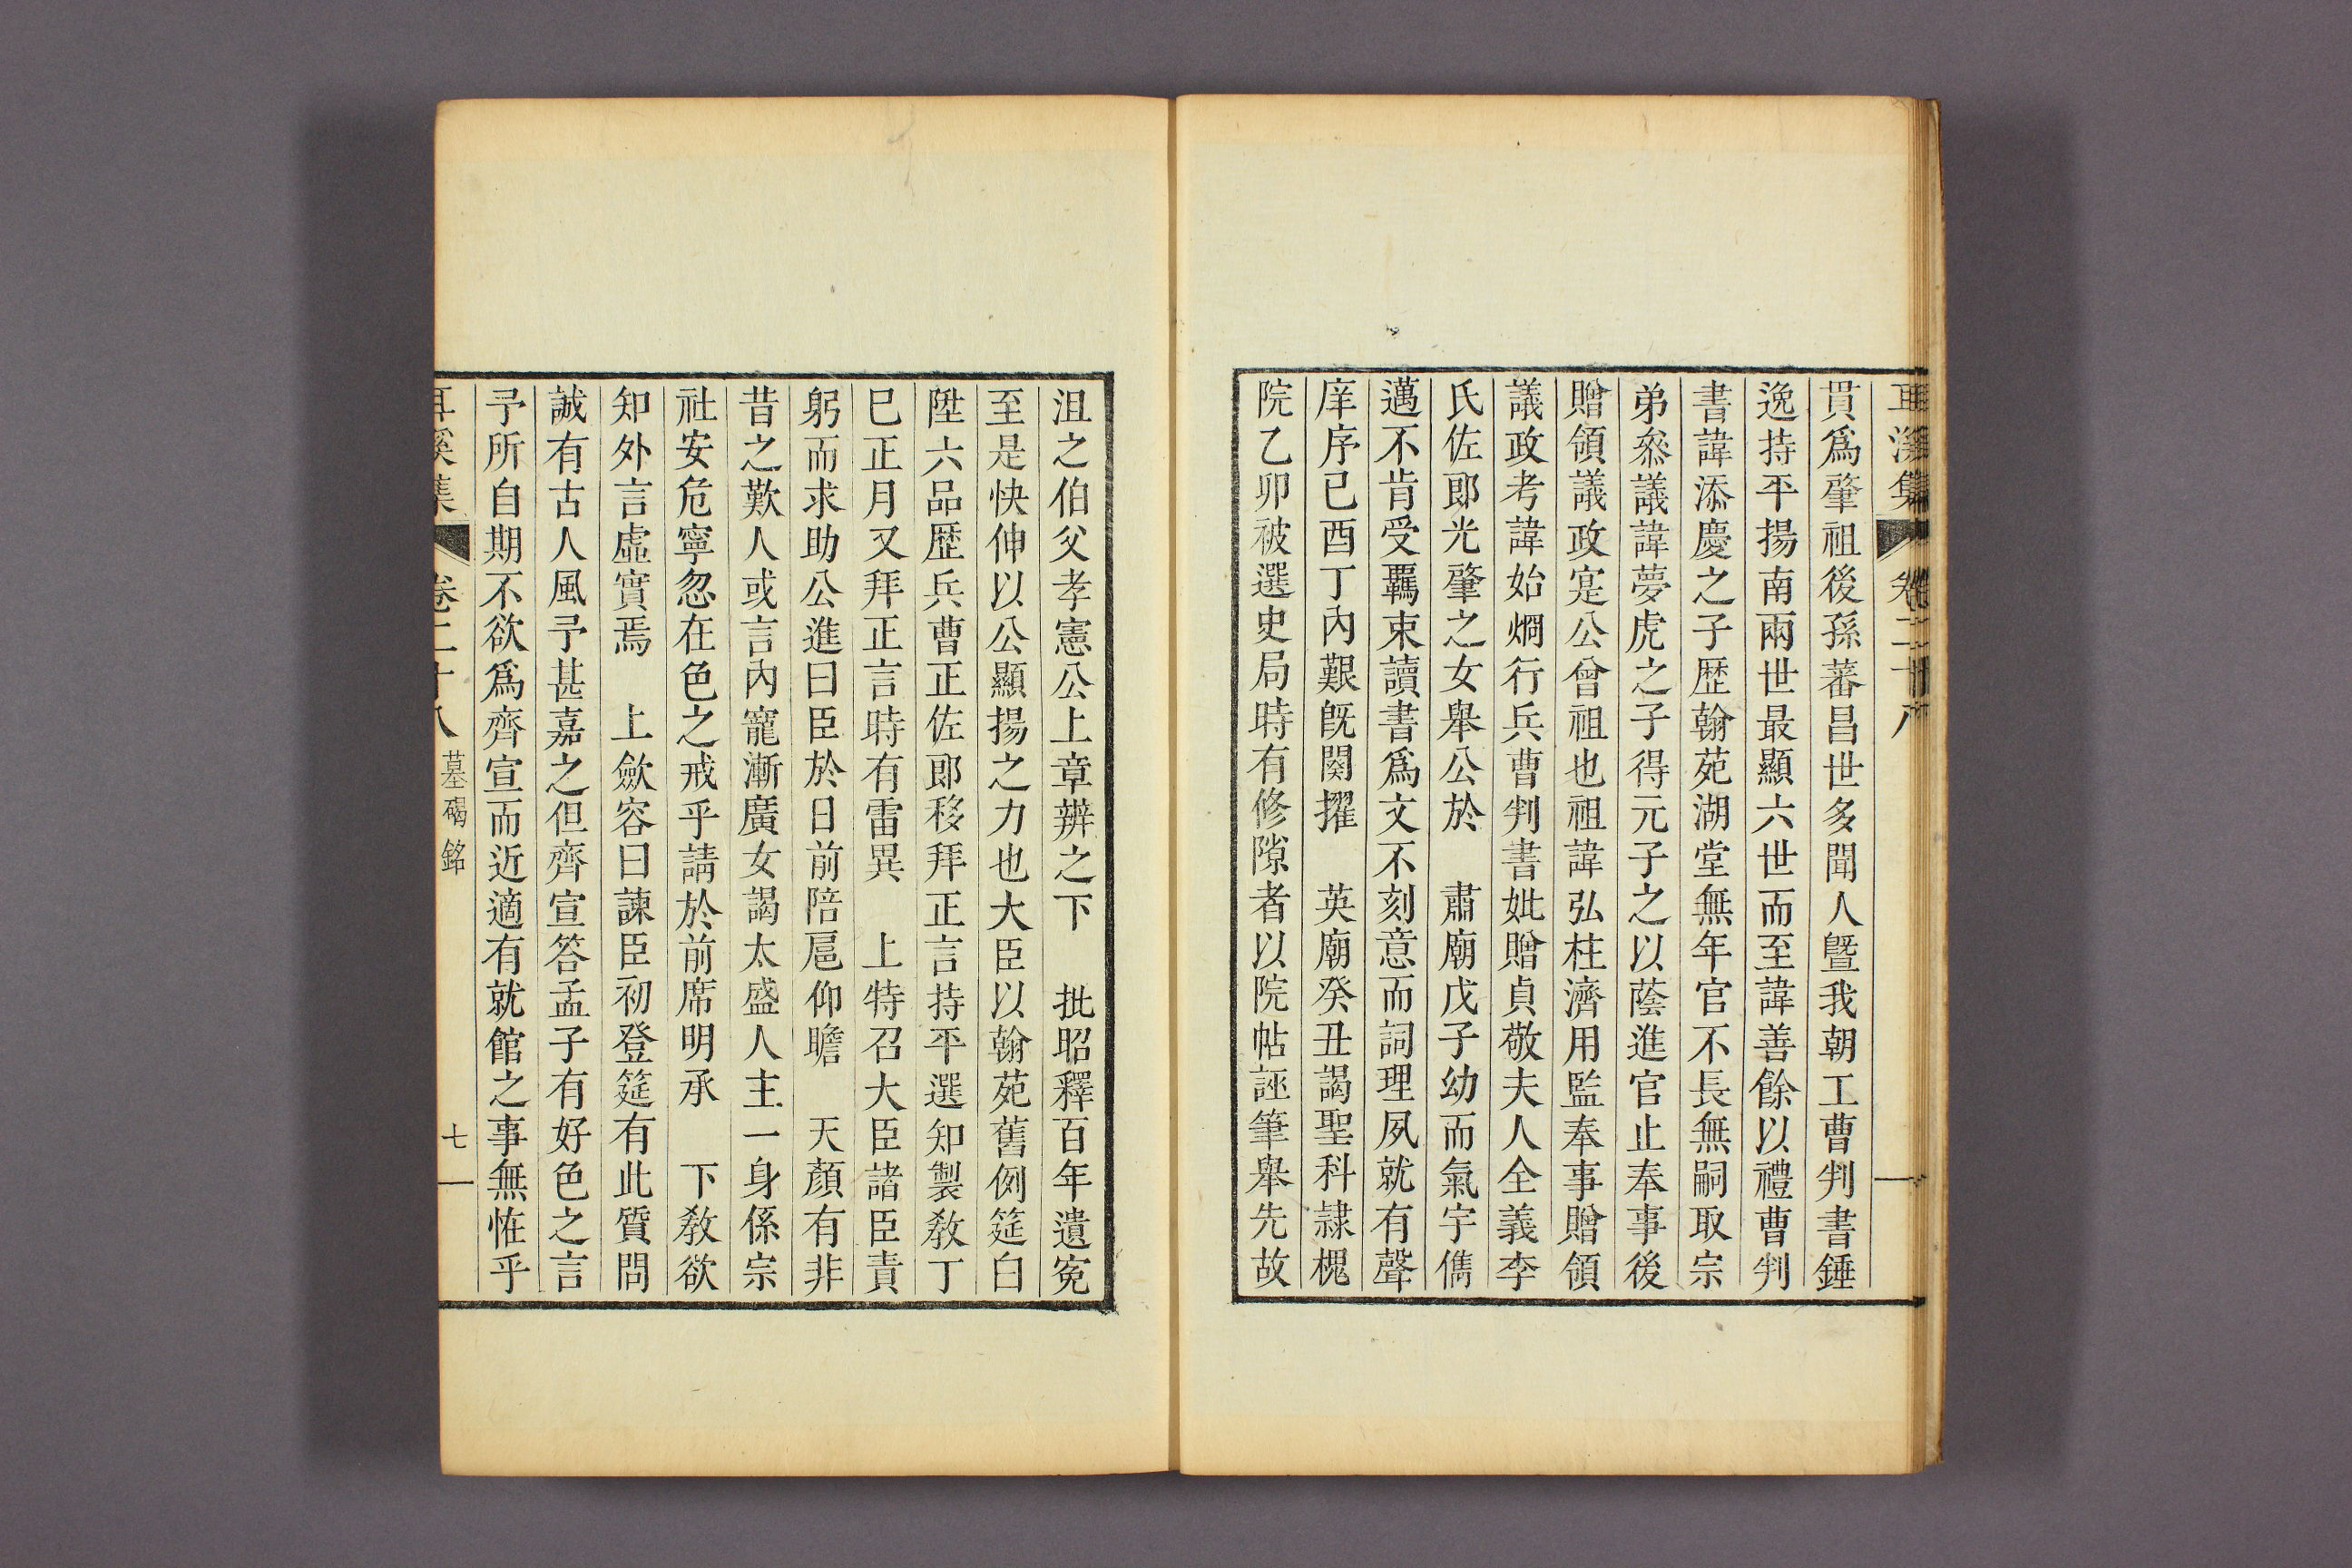 耳溪集 卷二十八
貫爲肇祖後孫蕃昌世多聞人曁我朝工曹判書錘
逸持平揚南兩世最顯六世而至諱善餘以禮曹判
書諱添慶之子歷翰苑湖堂無年官不長無嗣取宗
弟叅議諱夢虎之子得元子之以蔭進官止奉事後
贈領議政寔公曾祖也祖諱弘柱濟用監奉事贈領
議政考諱始烱行兵曹判書妣贈貞敬夫人全義李
氏佐郎光肇之女舉公於 肅廟戊子幼而氣宇儁
邁不肯受羈束讀書爲文不刻意而詞理夙就有聲
庠序已酉丁內艱旣闋擢 英廟癸丑謁聖科隷槐
院乙卯被選史局時有修隙者以院帖誣筆舉先故
沮之伯父孝憲公上章辨之下 批昭釋百年遺寃
至是快伸以公顯揚之力也大臣以翰苑舊例筵白
陞六品歷兵曹正佐郎移拜正言持平選知製敎丁
巳正月又拜正言時有雷異 上特召大臣諸臣責
躬而求助公進曰臣於日前陪扈仰瞻 天顏有非
昔之歎人或言內寵漸廣女謁太盛人主一身係宗
社安危寧忽在色之戒乎請於前席明承 下敎欲
知外言虛實焉 上斂容曰諫臣初登筵有此質問
誠有古人風予甚嘉之但齊宣答孟子有好色之言
予所自期不欲爲齊宣而近適有就館之事無恠乎
耳溪集 卷二十八 墓碣銘 七